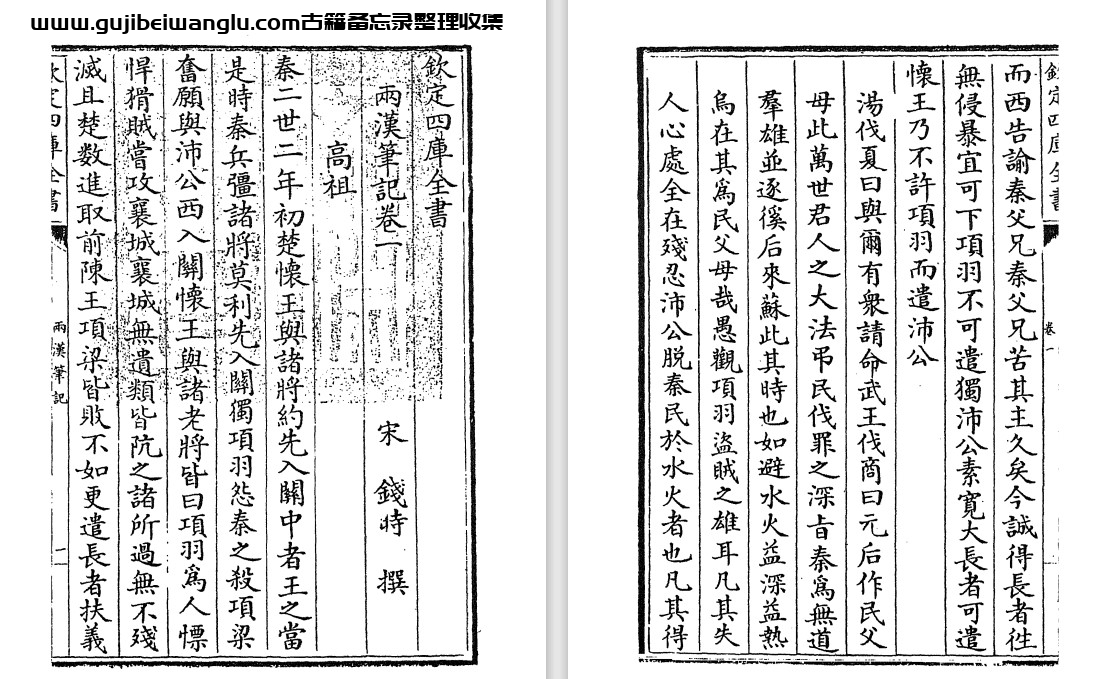 www.gujibeiwanglu.com古籍备忘录整理收集
欽定四庫全書
兩漢筆記卷一 宋 錢時 撰
高祖
秦二世二年初楚懷王與諸將約先入關中者王之當
是時秦兵彊諸將莫利先入關獨項羽怨秦之殺項梁
奮願與沛公西入關懷王與諸老將皆曰項羽爲人慓
悍猾賊嘗攻襄城襄城無遺類皆阬之諸所過無不殘
滅且楚數進取前陳王項梁皆敗不如更遣長者扶義
欽定四庫全書 兩漢筆記
欽定四庫全書 卷一
而西告諭秦父兄秦父兄苦其主久矣今誠得長者往
無侵暴宜可下項羽不可遣獨沛公素寬大長者可遣
懷王乃不許項羽而遣沛公
湯伐夏曰與爾有衆請命武王伐商曰元后作民父
母此萬世君人之大法弔民伐罪之深旨秦爲無道
羣雄並逐徯后來蘇此其時也如避水火益深益熱
烏在其爲民父母哉愚觀項羽盜賊之雄耳凡其失
人心處全在殘忍沛公脱秦民於水火者也凡其得